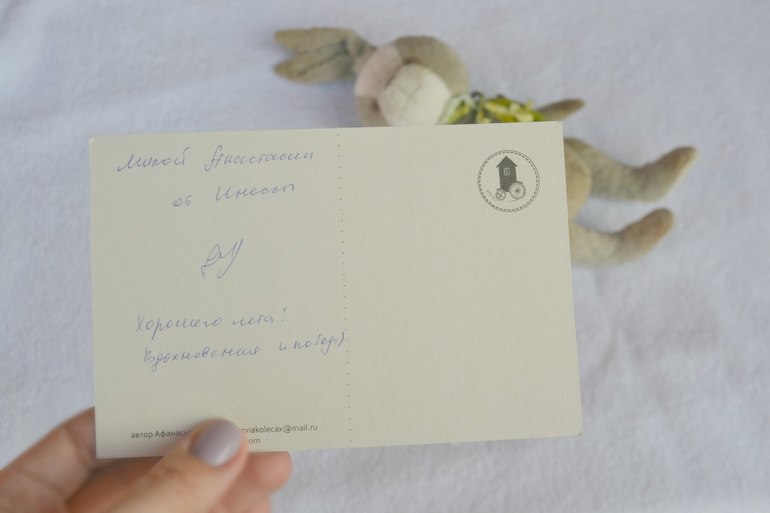 Милой Анастасии
от Инессы
Хорошего лета!
Вдохновения и побед)
автор Афанась mnakolecax@mail.ru
om